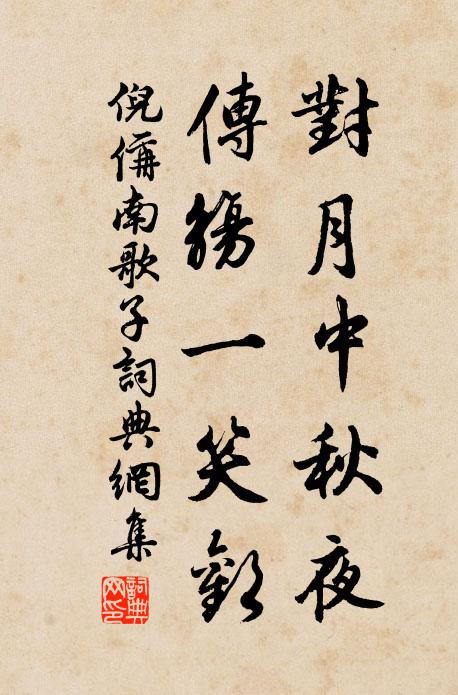 對月中秋夜
傳觴一笑歡
倪偁南歌子詞典網集
詞典网印